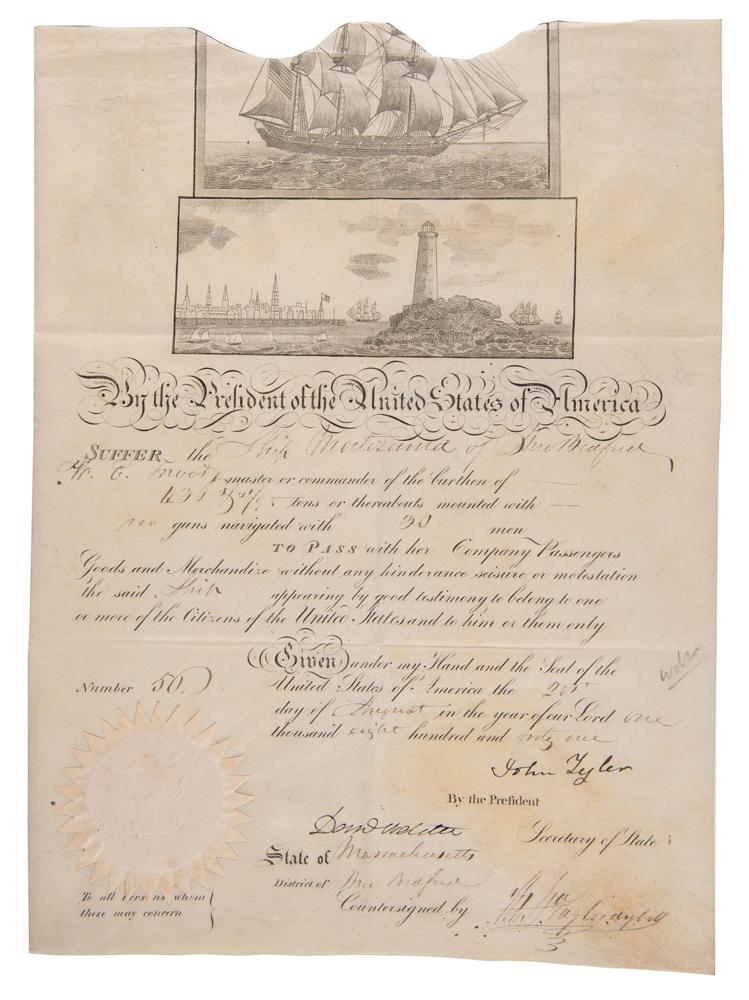 By the President of the United States of America
SUFFER the Ship Moctezuma of New Bedford
master or commander of the burthen of
tons or thereabouts mounted with
no guns navigated with 30 men
TO PASS with her Company Passengers
Goods and Merchandize without any hinderance seisure or molestation
the said Ship appearing by good testimony to belong to one
or more of the Citizens of the United States and to him or them only
Given under my Hand and the Seal of the
Number 50 United States of America the
day of August in the year of our Lord one
thousand eight hundred and forty one
John Tyler
By the President
Danl Webster Secretary of State
State of Massachusetts
District of New Bedford
To all Persons whom
these may concern
Countersigned by